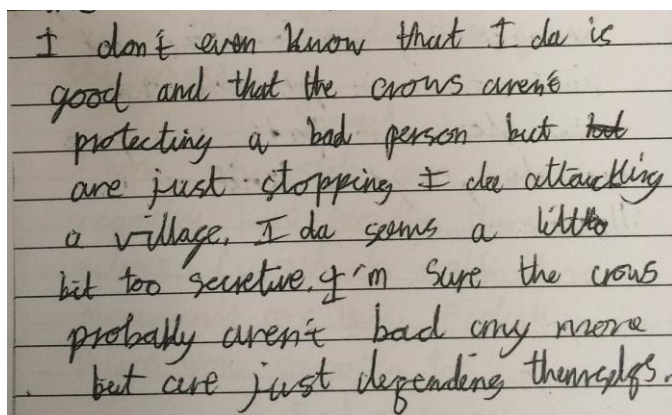 I don't even know that I da is
good and that the crows aren't
protecting a bad person but
are just stopping I da attauckling
a village. I da seems a little
bit too secretive. I'm sure the crows
probably aren't bad any more
but are just defending themselfs.